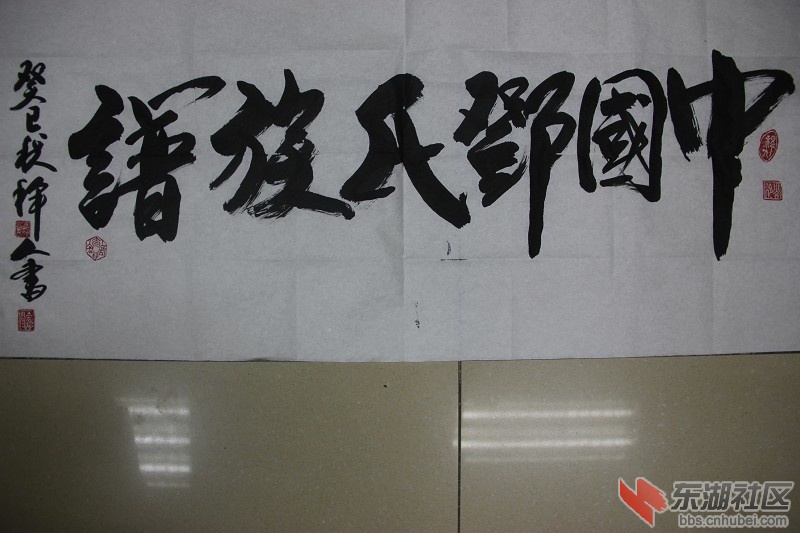 中國鄧氏族譜
癸巳
人書
东湖社区
bbs.cnhubei.com